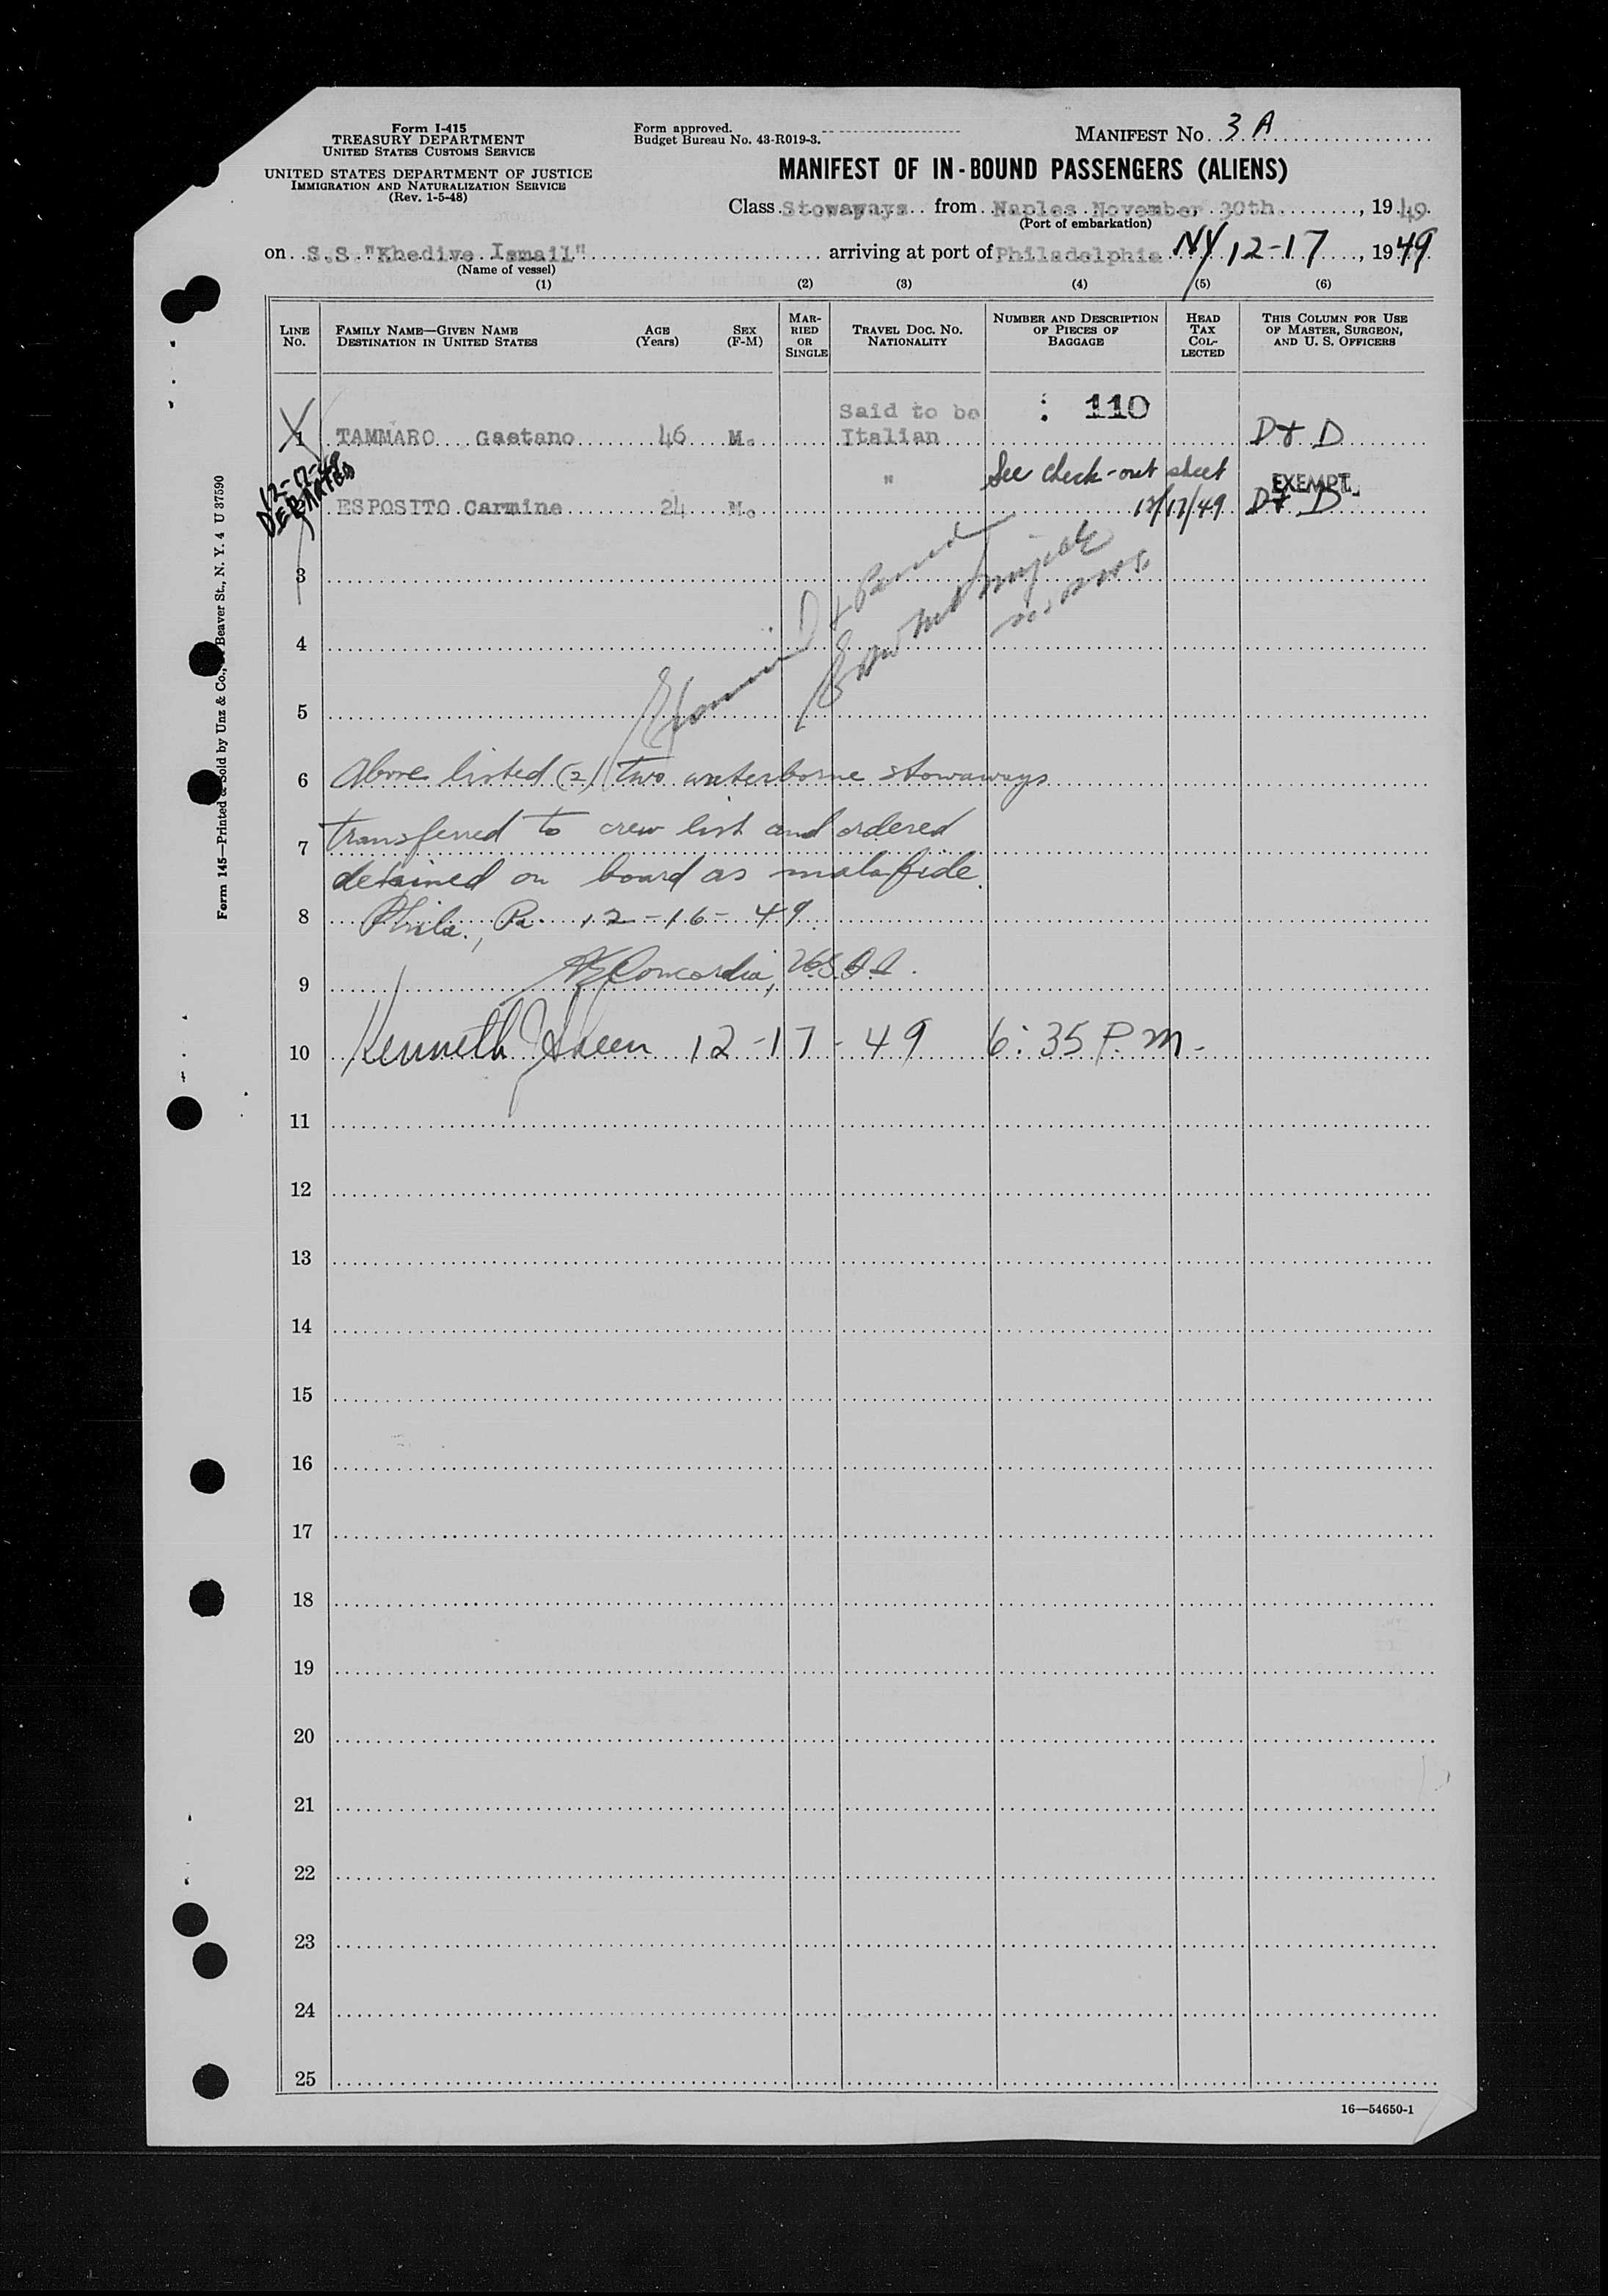 Form I-415
TREASURY DEPARTMENT
UNITED STATES CUSTOMS SERVICE
UNITED STATES DEPARTMENT OF JUSTICE
IMMIGRATION AND NATURALIZATION SERVICE
(Rev. 1-5-48)
Form approved.
Budget Bureau No. 43-R019-3.
MANIFEST NO. 3 A
MANIFEST OF IN-BOUND PASSENGERS (ALIENS)
Class Stowaways from Naples November 30th, 1949
(Port of embarkation)
on S.S. "Khedive Ismail" arriving at port of Philadelphia NY 12-17, 1949
(Name of vessel)
(1) (2) (3) (4) (5) (6)
LINE NO.
FAMILY NAME—GIVEN NAME
DESTINATION IN UNITED STATES
AGE (Years)
SEX (F-M)
MARRIED OR SINGLE
TRAVEL DOC. NO. NATIONALITY
NUMBER AND DESCRIPTION OF PIECES OF BAGGAGE
HEAD TAX COLLECTED
THIS COLUMN FOR USE OF MASTER, SURGEON, AND U. S. OFFICERS
Said to be : 110
1 TAMMARO Gaetano 46 M. Italian D & D
12-17-49
DEPARTED
" See check-out sheet EXEMPT
ESPOSITO Carmine 24 M. 12/17/49 D & D
3
4
5
6 Above listed (2) two waterborne stowaways
7 transferred to crew list and ordered
detained on board as mala fide.
8 Phila., Pa. 12-16-49
9 Concordia,
10 Kenneth 12-17-49 6:35 P.M.
11
12
13
14
15
16
17
18
19
20
21
22
23
24
25
16—54650-1
Form 145—Printed & Sold by Unz & Co., Beaver St., N. Y. 4 U 37590